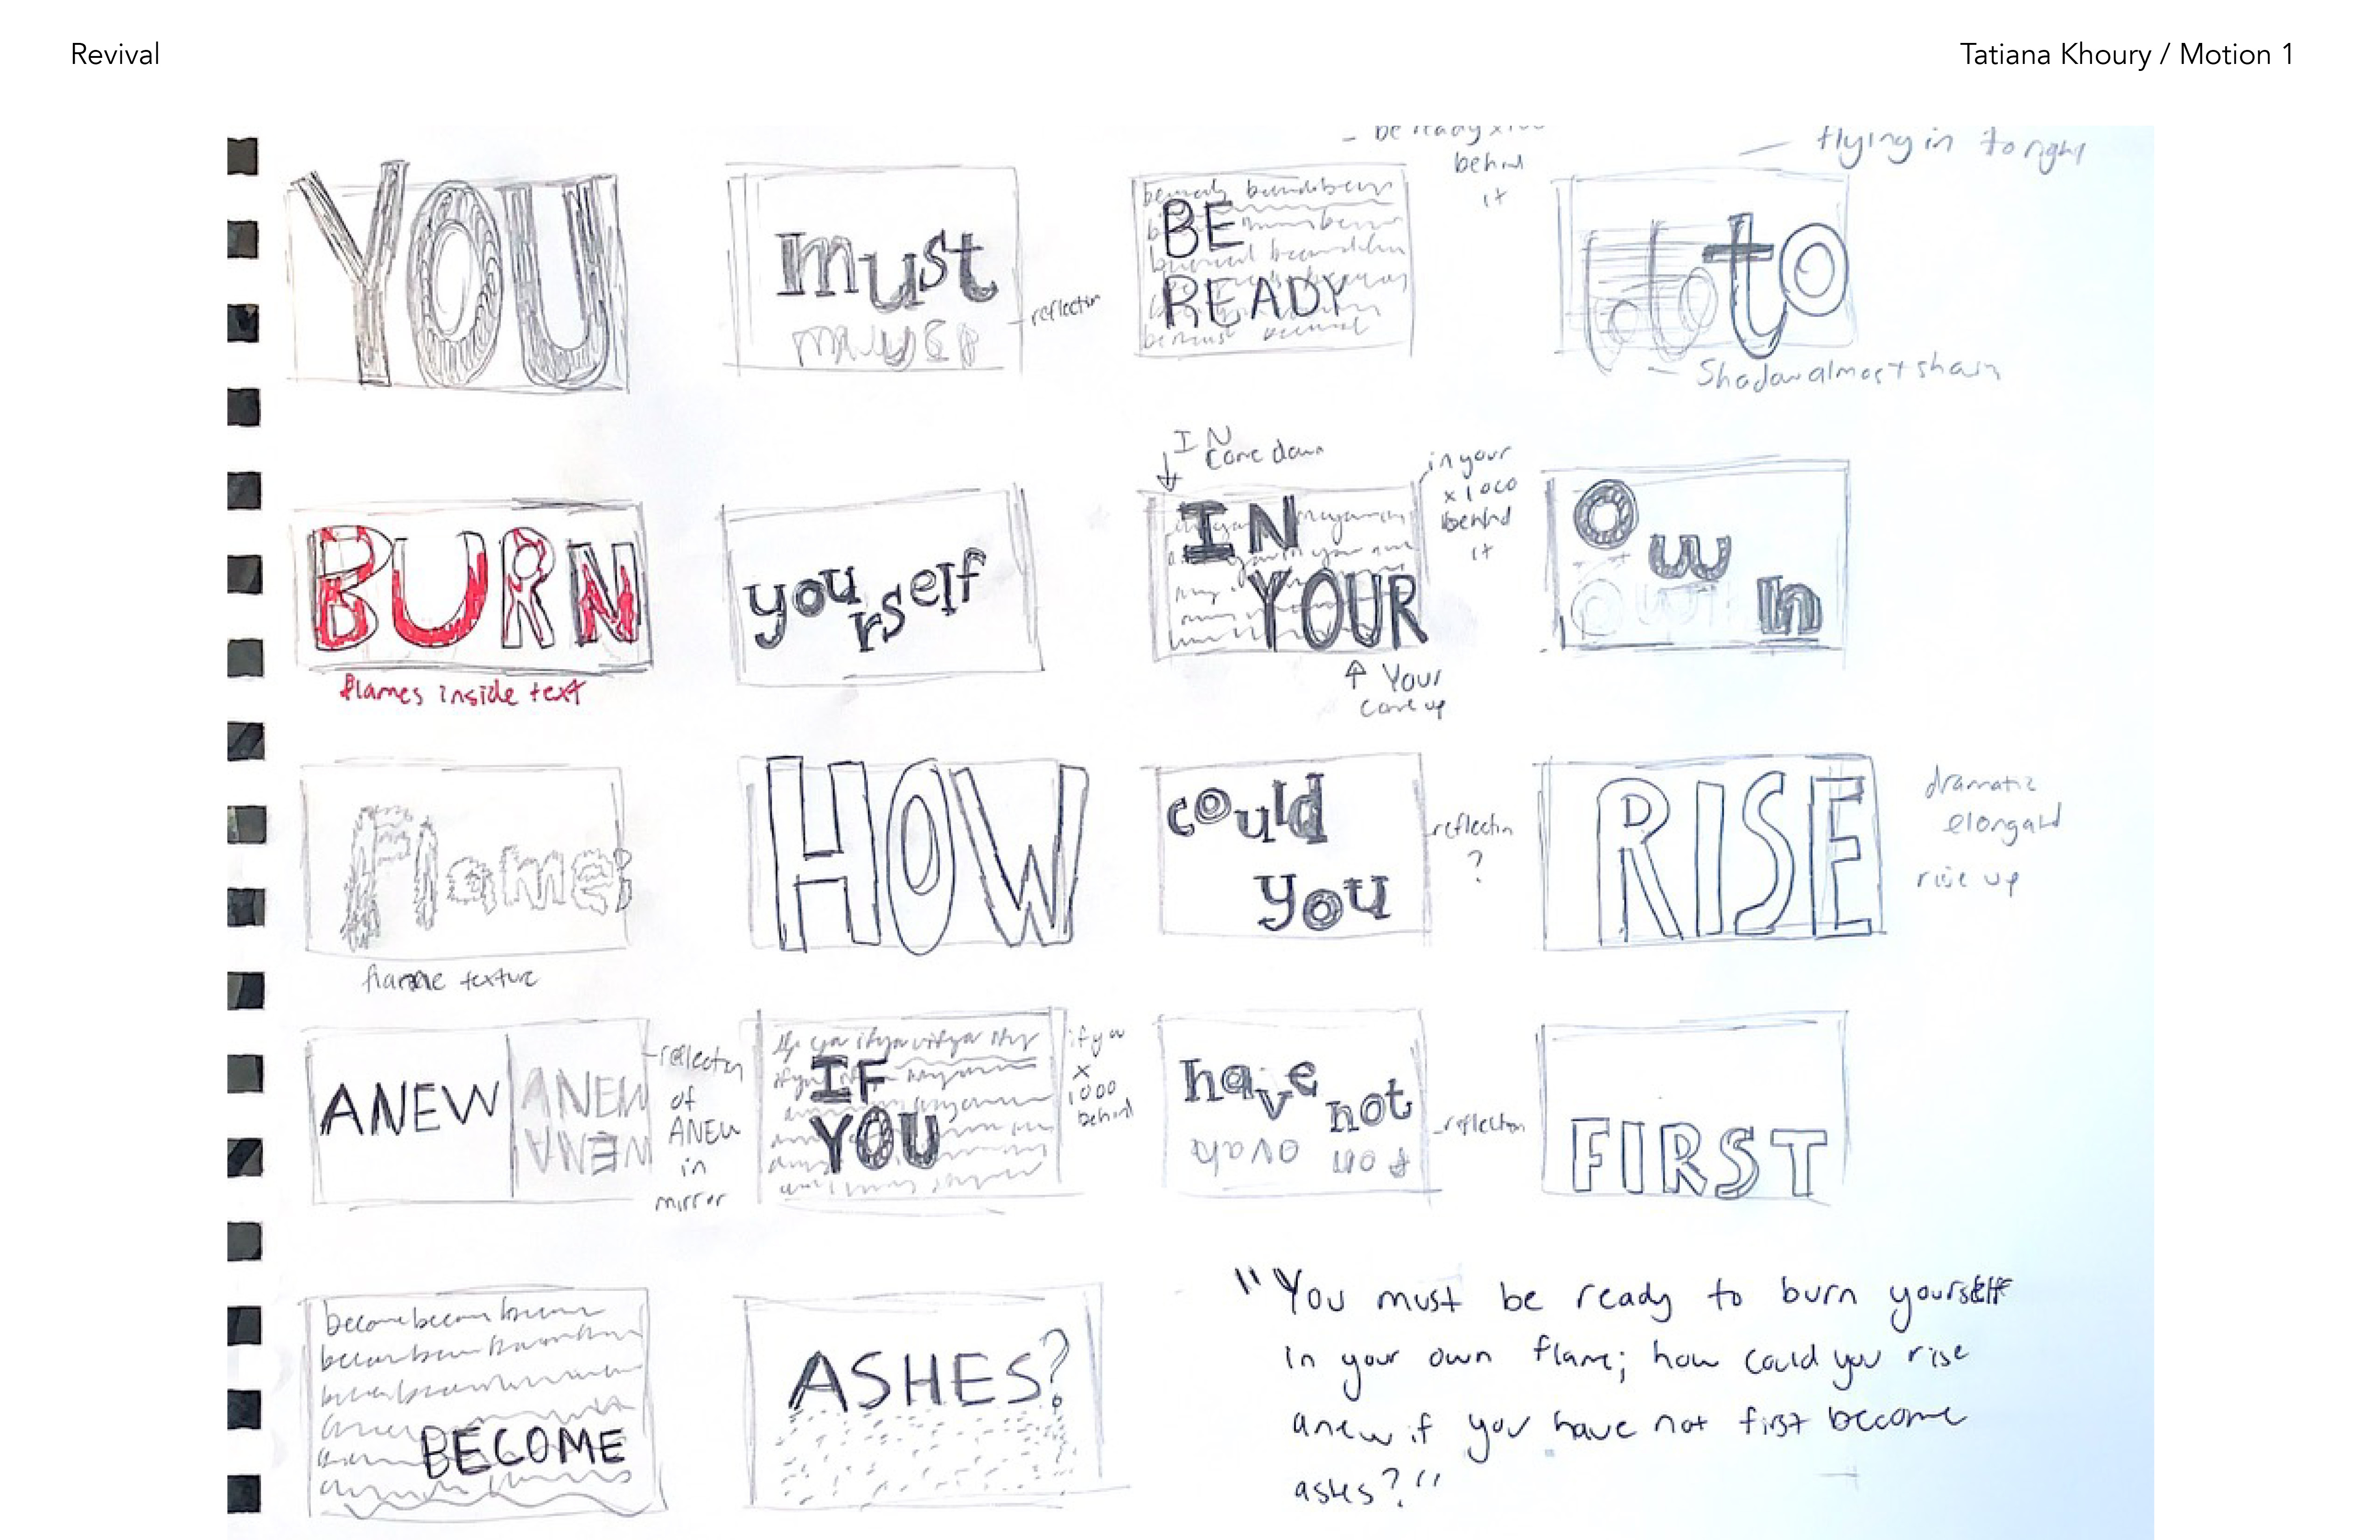 Revival
Tatiana Khoury / Motion 1
be ready x100
behind
it
flying in to right
YOU
must
reflection
BE
READY
to
Shadow almost
IN
come down
in your
x1000
behind
it
BURN
flames inside text
yourself
IN
YOUR
↑ Your
come up
own
flame;
flame texture
HOW
could
you
reflectin
?
RISE
dramatic
elongated
rise up
ANEW
ANEW
reflection
of
ANEW
in
mirror
IF
YOU
if you
x
1000
behind
have
not
reflection
FIRST
become become become
BECOME
ASHES?
"You must be ready to burn yourself
in your own flame; how could you rise
anew if you have not first become
ashes?"